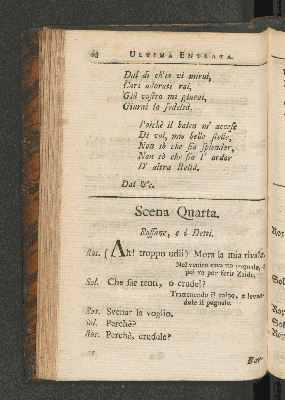 68 ULTIMA ENTRATA.
Dal dì ch'io vi mirai,
Cari adorati rai,
Già vostro mi giurai,
Giurai la fedeltà.
Poichè il balen m' accese
Di voi, mie belle stelle,
Non sò che sia splendor,
Non sò che sia l' ardor
D' altra Beltà.
Dal &c.
Scena Quarta.
Rossane, e i Detti.
Ros. (Ah! troppo udii) Mora la mia rivale.
Nel venire cava un pugnale, e
poi va per ferir Zaide,
Sol. Che fae tenti, o crudel?
Trattenendo il colpo, e levan-
dole il pugnale.
Ros. Svenar la voglio.
Sol. Perchè?
Ros. Perchè, crudele?